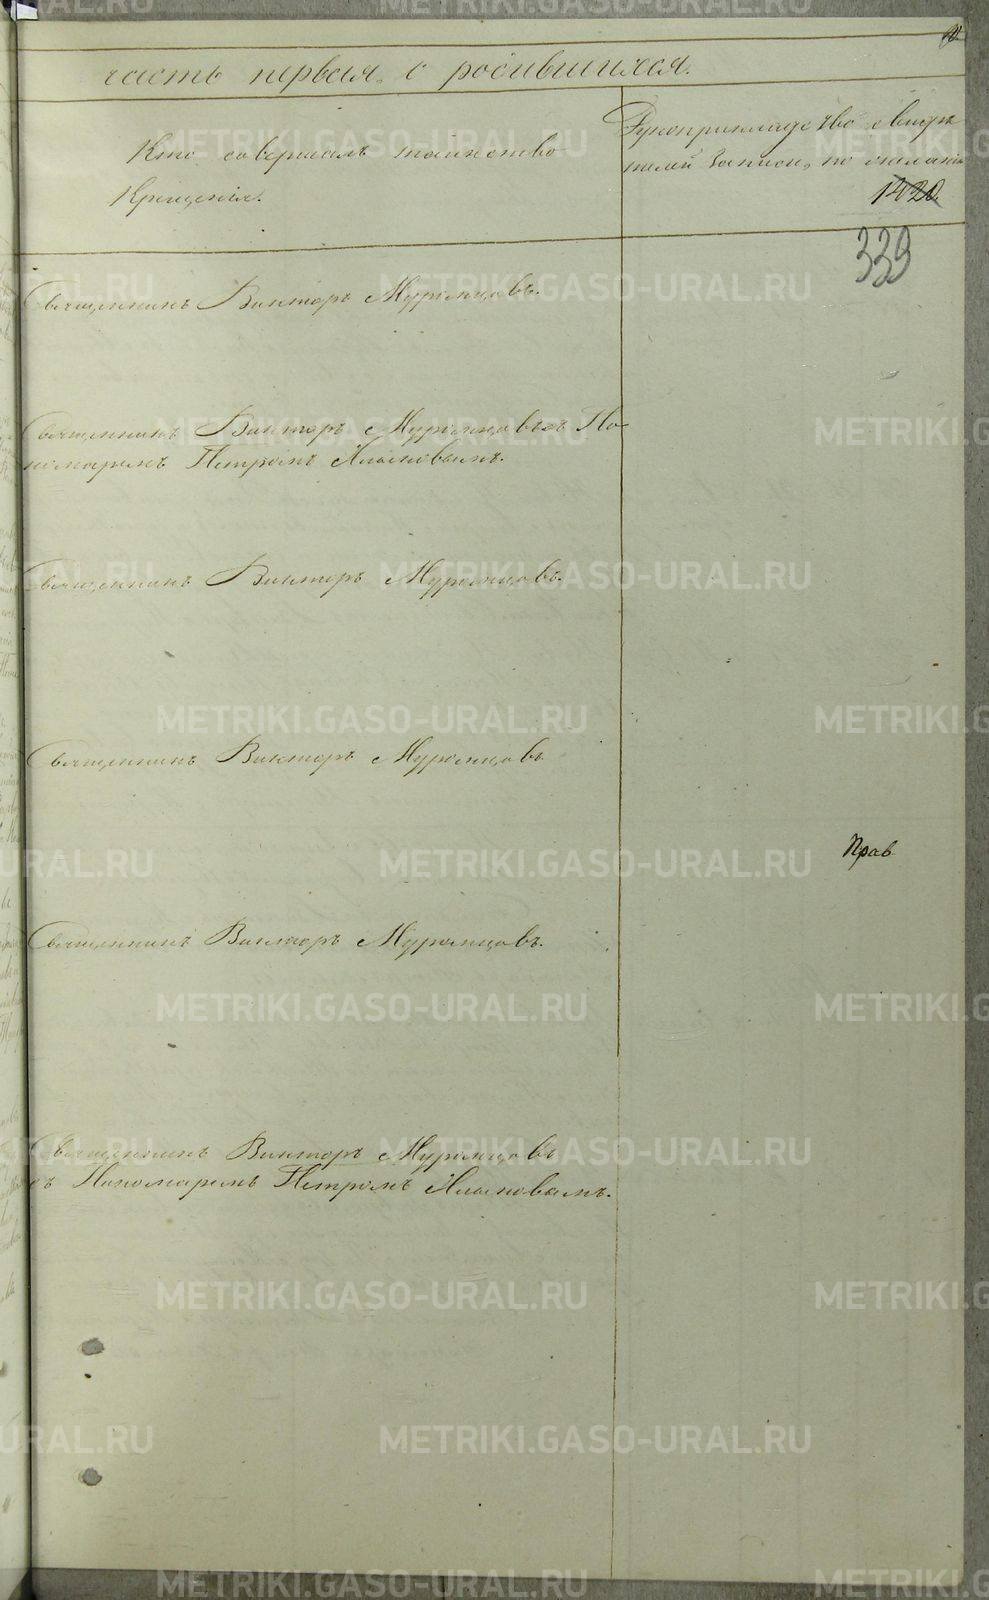 часть первая, о родившихся.
Кто совершалъ таинство
Крещенія.
Рукоприкладство свидѣ
телей записи, по желанію
1420
339
Священникъ Викторъ Муромцовъ.
Священникъ Викторъ Муромцовъ съ По-
номаремъ Петромъ
Священникъ Викторъ Муромцовъ.
Священникъ Викторъ Муромцовъ
Прав
Священникъ Викторъ Муромцовъ.
Священникъ Викторъ Муромцовъ
съ Пономаремъ Петромъ
METRIKI.GASO-URAL.RU